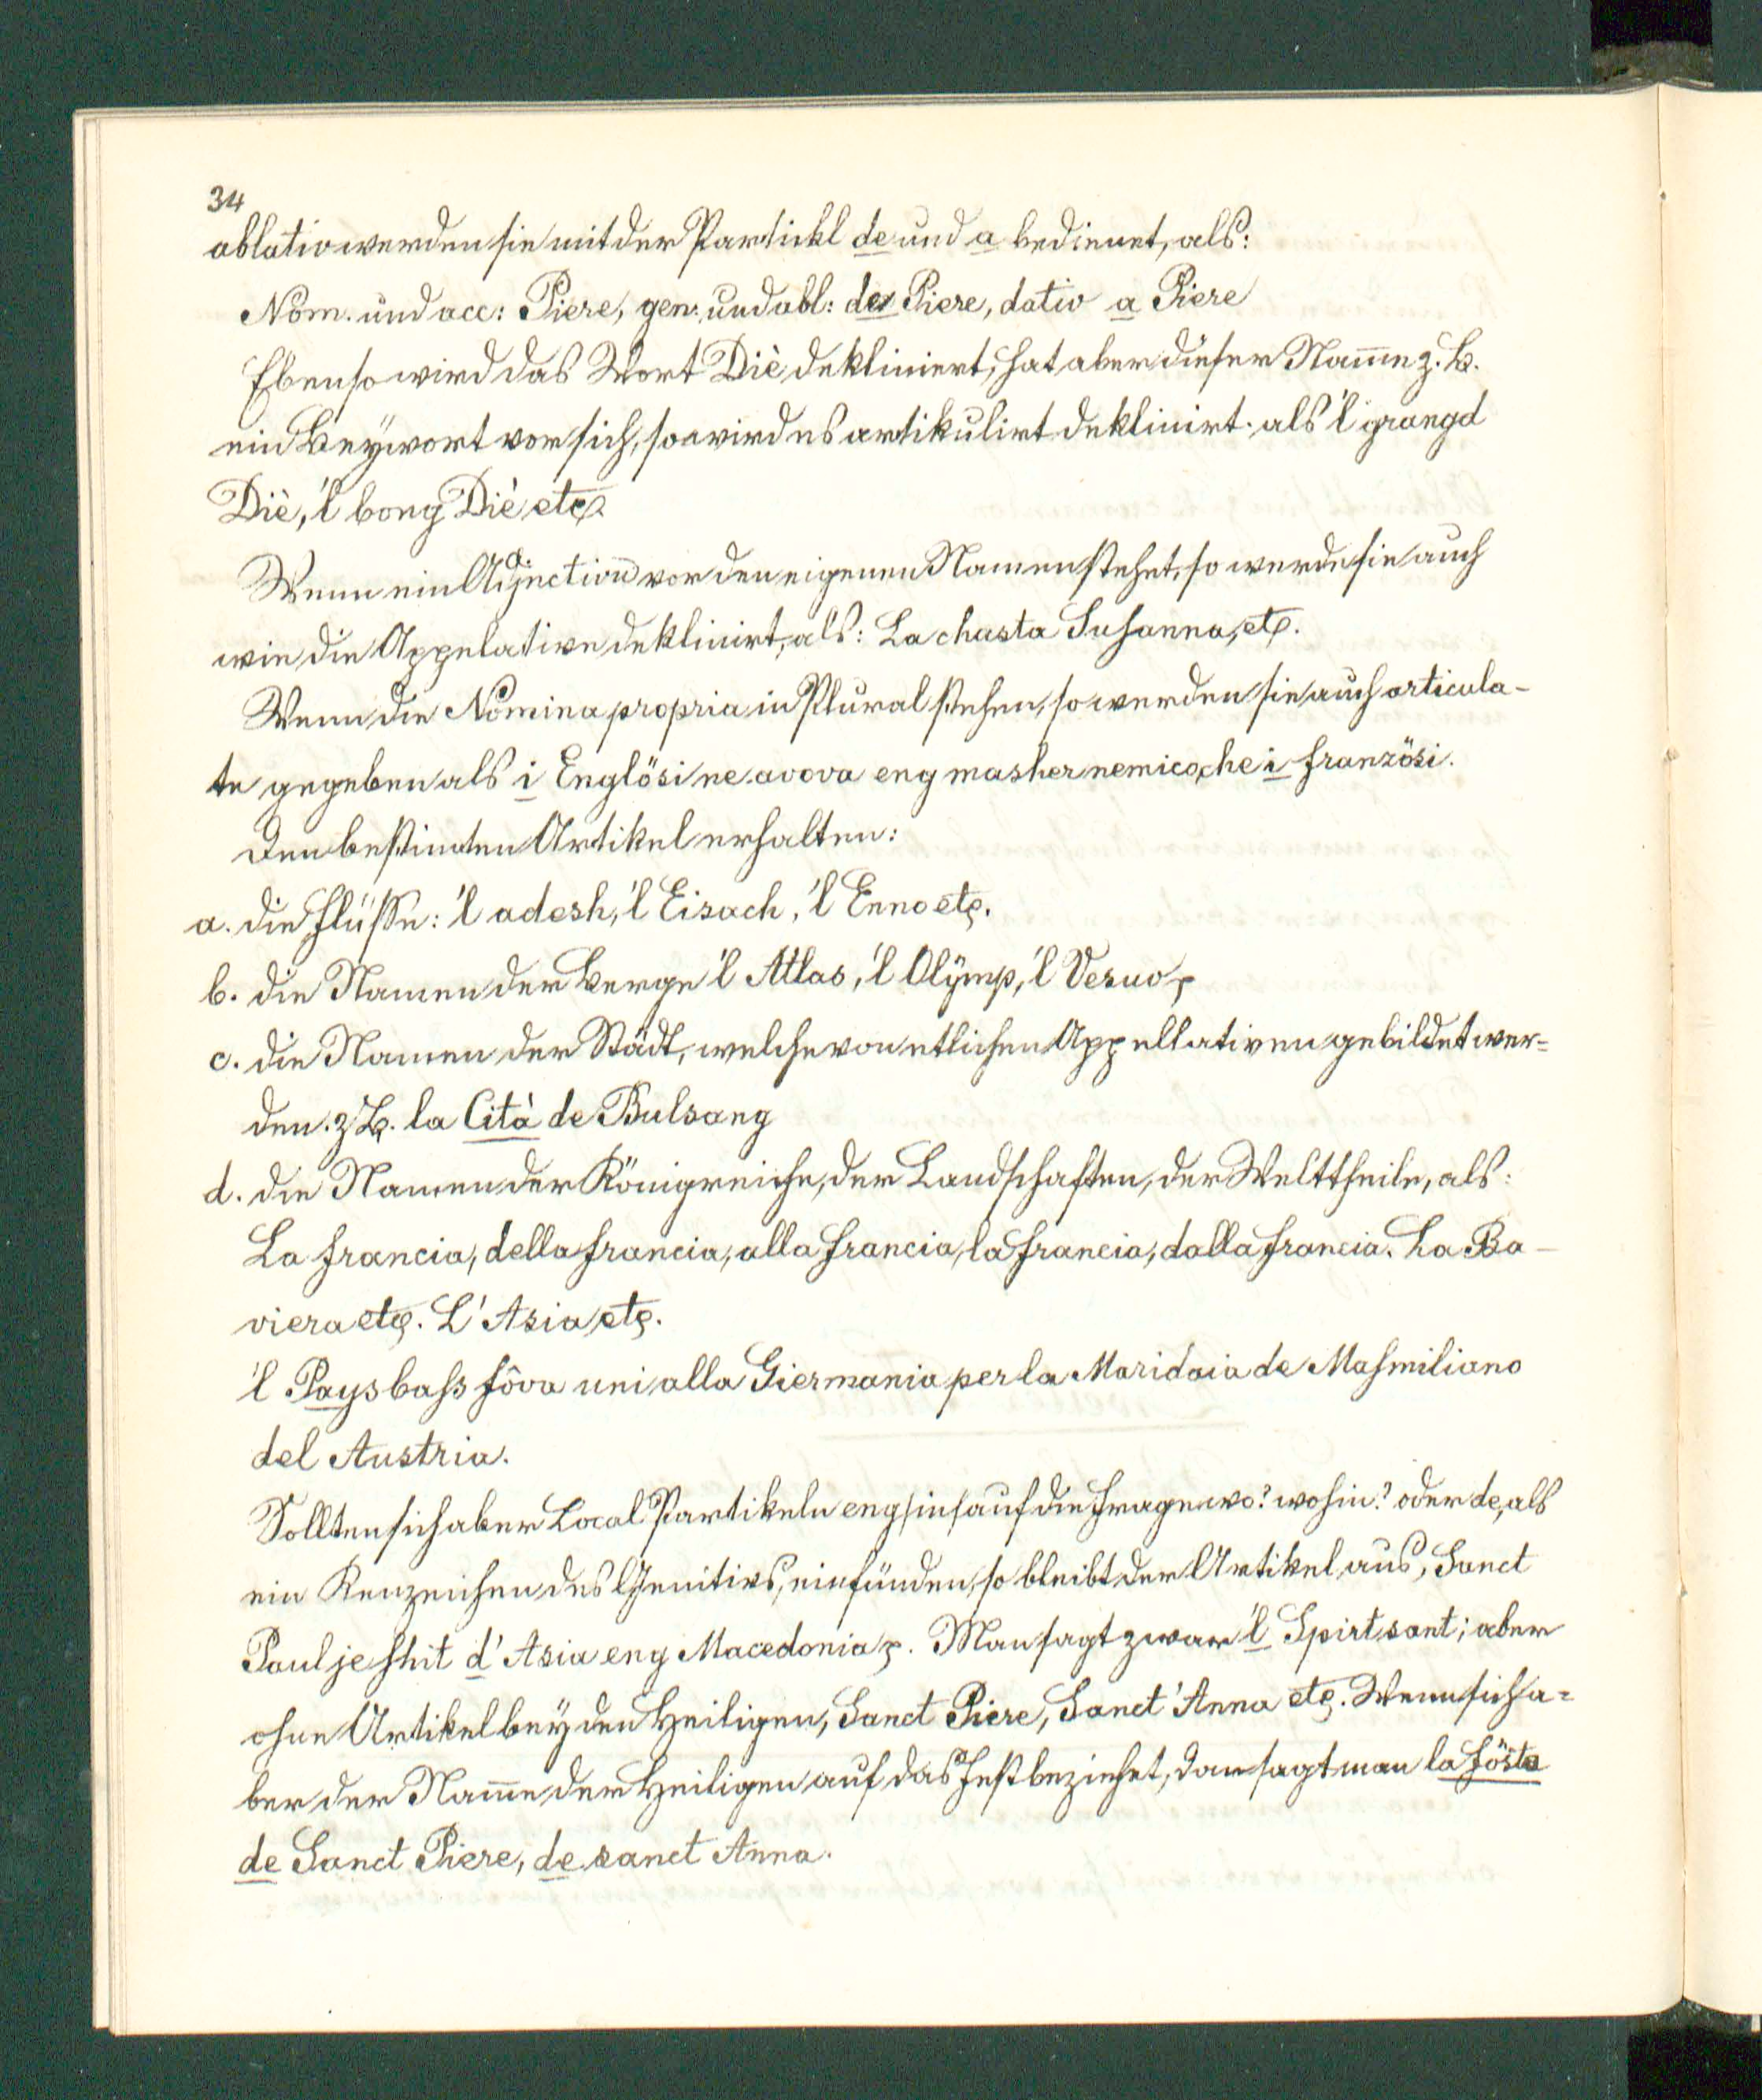 34
ablativ werden sie mit der Partickl de und a bedienet, als:
Nom. und acc: Piere, gen: und abl: de Piere, dativ a Piere
Ebenso wird das Wort Diè dekliniert, hat aber dieser Nam̅e z. B.
ein Beÿwort vor sich, so wird es artikulirt deklinirt. als 'l grangd
Diè, 'l bong Diè etc.
Wenn ein Adjectiv vor den eigenen Namen stehet, so werde sie auch
wie die Appelative deklinirt, als: La chasta Susanna, etc.
Wenn die Nomina propria in Plural stehen, so werden sie auch articula-
te gegeben als i Englösi ne avova eng masher nemico, che i französi.
Den bestim̅ten Artikel erhalten:
a. die Flüsse: 'l adesh, 'l Eisach, 'l Enno etc.
b. die Namen der Berge 'l Atlas, 'l Olÿmp, 'l Vesuv
c. die Namen der Städt, welche von etlichen Appellativen gebildet wer=
den. z B. la Cità de Bulsang
d. die Namen der Königreiche, der Landschaften, der Welttheile, als:
La Francia, della Francia, alla Francia, la Francia, dalla Francia. La Ba-
viera etc. L'Asia etc.
'l Paysbass fôva uni alla Giermania per la Maridaia de Masmiliano
del Austria.
Sollten sich aber Local Partikeln eng /in/ auf die Frage wo? wohin? oder de, als
ein Kenzeichen des Genitivs, einfünden, so bleibt der Artikel aus, Sanct
Paul je shit d'Asia eng Macedonia. Man sagt zwar 'l Spirt sant; aber
ohne Artikel beÿ den Heiligen, Sanct Piere, Sanct'Anna etc. Wenn sich a=
ber der Nam̅e der Heiligen auf das Fest beziehet, dan sagt man la fösta
de Sanct Piere, de sanct Anna.